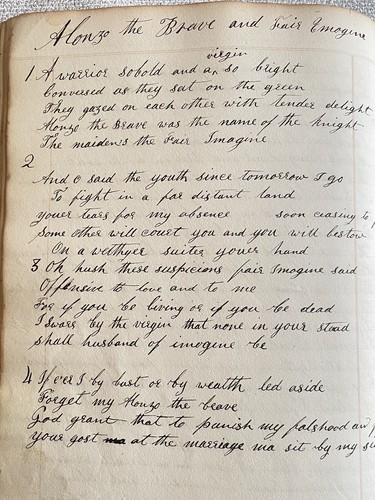 Alonzo the Brave and Fair Emogine
virgin
1 A warrior sobold and a, so bright
Conversd as they sat on the green
They gazed on each other with tender delight
Alonzo the Brave was the name of the knight
The maidens the Fair Imogine
2
And O said the youth since tomorrow I go
To fight in a far distant land
youer tears for my absence soon ceasing to
Some other will court you and you will bestow
On a welthyer suiter youer hand
3 Oh hush these suspicions fair Imogine said
Offensive to love and to me
For if you be living or if you be dead
I swore by the virgin that none in your stead
shall husband of imogine be
4 If ever I by lust or by wealth led aside
Forget my Alonzo the brave
God grant that to punish my falshood and
your gost at the marriage ma sit by my